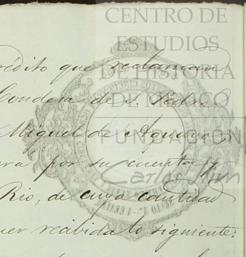 CENTRO DE
ESTUDIOS
DE HISTORIA
DE MÉXICO
FUNDACIÓN
Carlos Slim
rédito que reclaman
Condesa de S. Pedro
Miguel de
por su cuenta y
Rio, de cuya cantidad
recibida lo siguiente: